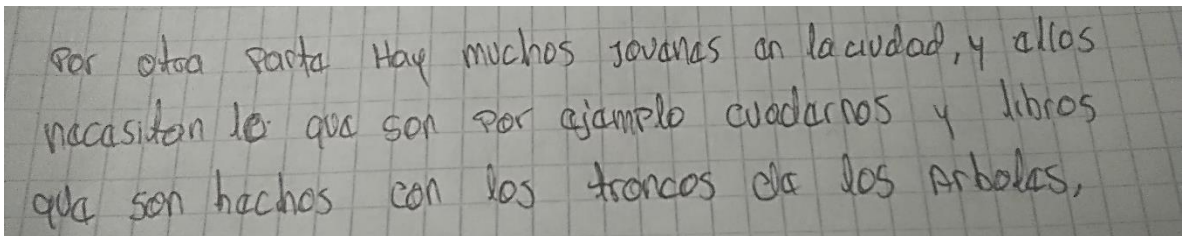 Por otra parte Hay muchos jovenes en la ciudad, y ellos
necesitan lo que son por ejemplo cuadernos y libros
que son hechos con los troncos de los Arboles,